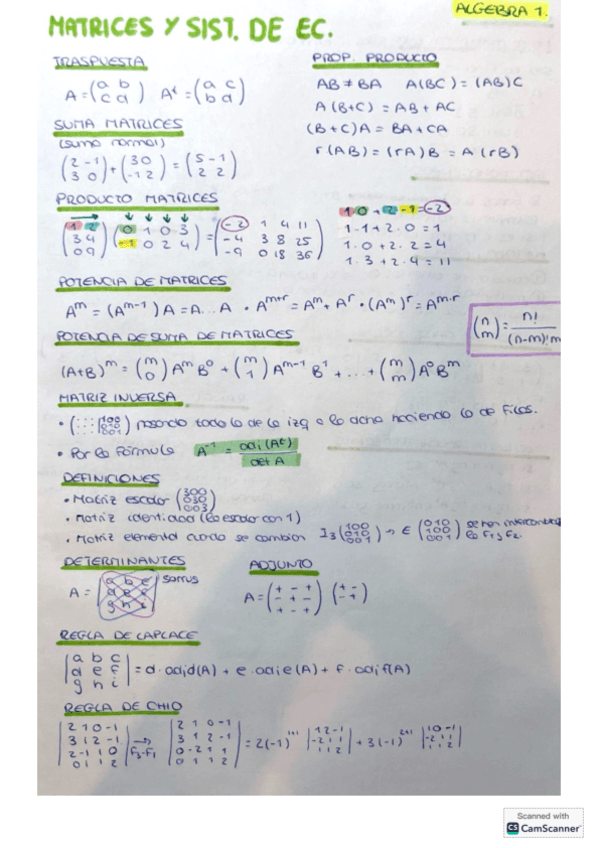 ALGEBRA 1.
MATRICES Y SIST. DE EC.
TRASPUESTA
A = (a b / c d) A^t = (a c / b d)
SUMA MATRICES
(suma normal)
(2 -1 / 3 0) + (3 0 / -1 2) = (5 -1 / 2 2)
PROP. PRODUCTO
AB ≠ BA A(BC) = (AB)C
A(B+C) = AB + AC
(B+C)A = BA + CA
r(AB) = (rA)B = A(rB)
PRODUCTO MATRICES
(1 2 / 3 4 / 0 9) (0 1 0 3 / -1 0 2 4) = (-2 1 4 11 / -4 3 8 25 / -9 0 18 36)
1·0 + 2·-1 = -2
1·1 + 2·0 = 1
1·0 + 2·2 = 4
1·3 + 2·4 = 11
POTENCIA DE MATRICES
A^m = (A^m-1) A = A... A · A^m+r = A^m + A^r · (A^m)^r = A^m·r
(n / m) = n! / (n-m)!m
POTENCIA DE SUMA DE MATRICES
(A+B)^m = (m / 0) A^m B^0 + (m / 1) A^m-1 B^1 + ... + (m / m) A^0 B^m
MATRIZ INVERSA
· (... | 100 / ... | 010 / ... | 001) pasando todo lo de la izq a la dcha haciendo lo de filas.
· Por la fórmula A^-1 = adj(A^t) / det A
DEFINICIONES
· Matriz escalar (300 / 030 / 003)
· Matriz identidad (la escalar con 1)
· Matriz elemental cuando se cambian I3 (100 / 010 / 001) → E (010 / 100 / 001) se han intercambia
la F1 y F2.
DETERMINANTES
A = |a b c / d e f / g h i| sarrus
ADJUNTO
A = (+ - + / - + - / + - +) (+ - / - +)
REGLA DE LAPLACE
|a b c / d e f / g h i| = d·adjd(A) + e·adje(A) + f·adjf(A)
REGLA DE CHIO
|2 1 0 -1 / 3 1 2 -1 / 2 -1 1 0 / 0 1 1 2| → F3-F1 |2 1 0 -1 / 3 1 2 -1 / 0 -2 1 1 / 0 1 1 2| = 2(-1)^1+1 |1 2 -1 / -2 1 1 / 1 1 2| + 3(-1)^2+1 |1 0 -1 / -2 1 1 / 1 1 2|
Scanned with
CS CamScanner